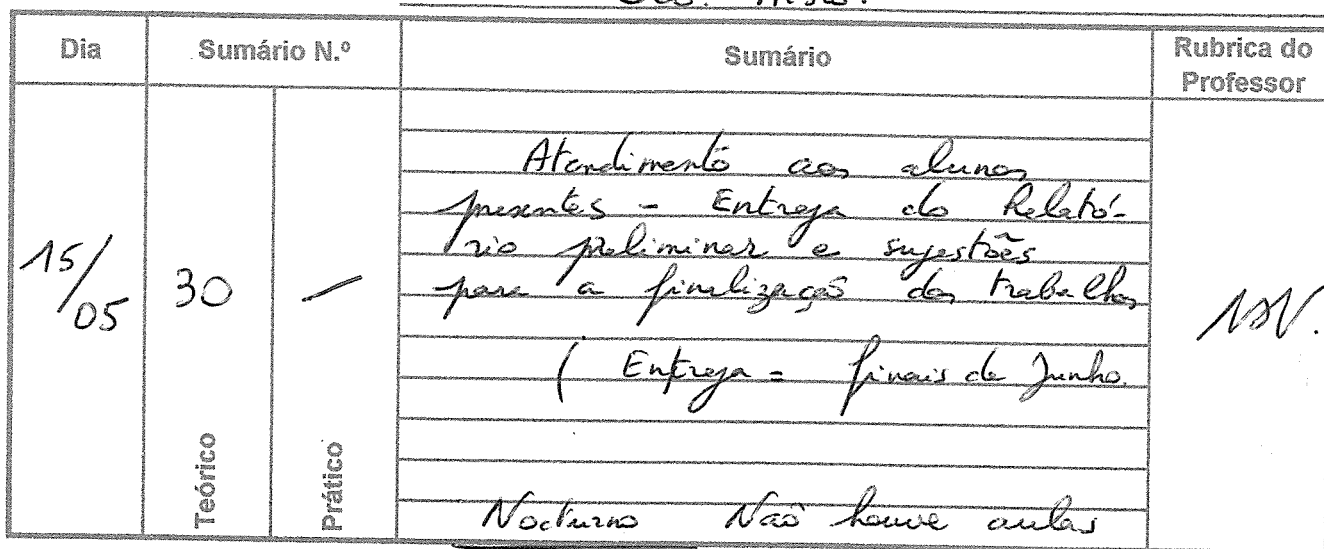 Dia
Sumário N.º
Sumário
Rubrica do
Professor
15/05
30
—
Teórico
Prático
Atendimento aos alunos
presentes - Entrega do Relató-
rio preliminar e sugestões
para a finalização dos trabalhos
( Entrega = finais de Junho.
Nocturno Não houve aulas